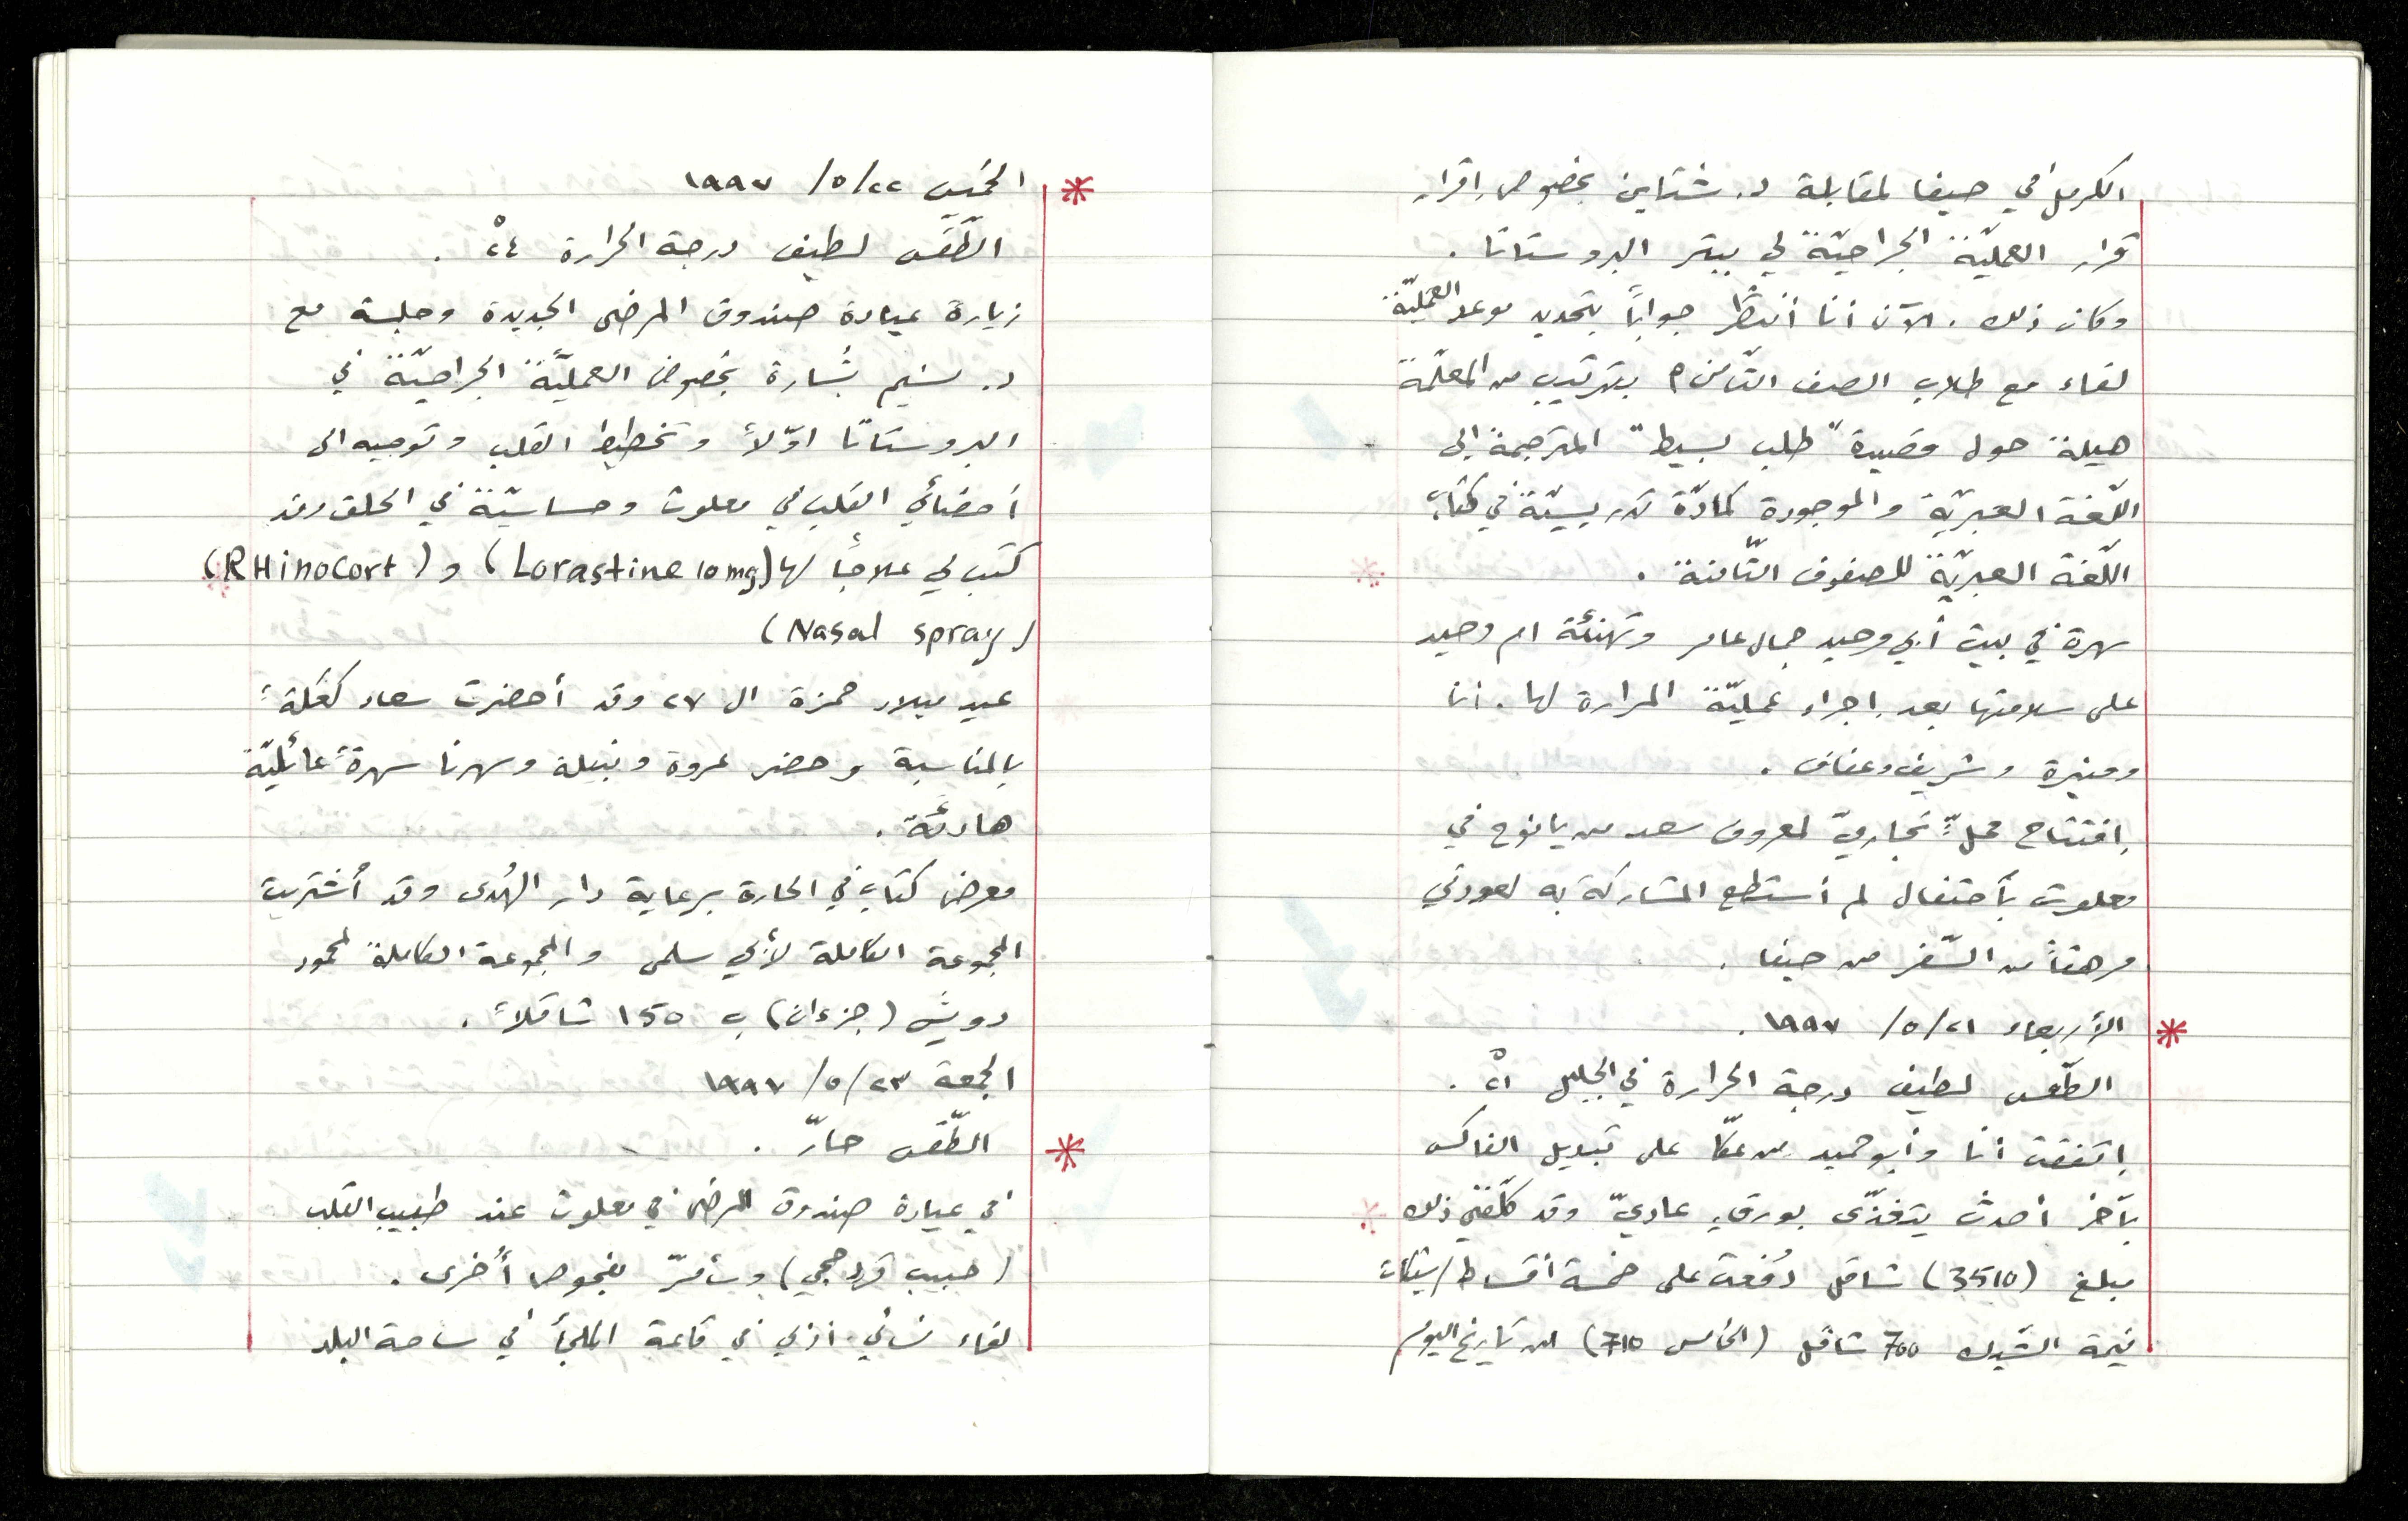 الكرمل في حيفا لمقابلة د. شتاين بخصوص إقرار
قرار العمليّة الجراحيّة لي ببتر البروستاتا .
وكان ذلك . الآن أنا أنتظر جواباً بتحديد موعد العمليّة
لقاء مع طلاب الصف الثّامن م بترتيب من المعلّمة
هيلة حول قصيدة "طلب بسيط" المترجمة إلى
اللّغة العبريّة والموجودة كمادّة تدريسيّة في كتاب
اللّغة العبريّة للصفوف الثّامنة .
سهرة في بيت أبي وحيد جمال عامر وتهنئة ام وحيد
على سلامتها بعد إجراء عمليّة المرارة لها . أنا
ومنيرة وشريف وعفاف .
إفتتاح محلّ تجاريّ لمعروف سعد من يانوح في
معلوت بأحتفال لم أستطع المشاركة به لعودتي
مرهقاً من السّفر من حيفا .
* الأربعاء ٢١/ ٥/ ١٩٩٧ .
الطّقس لطيف درجة الحرارة في الجليل ٢١° .
إتفقت أنا وأبو حميد من عكّا على تبديل الفاكس
بآخر أحدث يتغذّى بورقٍ عاديّ وقد كلّفني ذلك
مبلغ (3510) شاقل دُفعت على خمسة أقساط/شيكات
قيمة الشّيك 700 شاقل (الخامس 710) من تاريخ اليوم
* الخميس ٢٢/ ٥/ ١٩٩٧
الطّقس لطيف درجة الحرارة ٢٤° .
زيارة عيادة صندوق المرضى الجديدة وجلسة مع
د. نسيم بشارة بخصوص العمليّة الجراحيّة في
البروستاتا اوّلاً وتخطيط القلب وتوجيه الى
أخصّائي القلب في معلوت وحساسيّة في الحلق وقد
كتب لي علاجاً لها (Lorastine 10 mg) و (RHinocort)
(Nasal spray)
عيد ميلاد حمزة ال ٢٧ وقد أحضرت سعاد كعكةً
بالمناسبة وحضر عروة ونبيلة وسهرنا سهرةً عائليّة
هادئة .
معرض كتاب في الحارة برعاية دار الهُدى وقد أشتريت
المجموعة الكاملة لأبي سلمى والمجموعة الكاملة لمحمود
درويش (جزءان) ب 150 شاقلاً .
الجمعة ٢٣/ ٥/ ١٩٩٧
* الطّقس حارّ .
في عيادة صندوق المرضى في معلوت عند طبيب القلب
(حبيب قردحجي) وسأمرّ بفحوص أُخرى .
لقاء نسائي أدبي في قاعة الملجأ في ساحة البلد